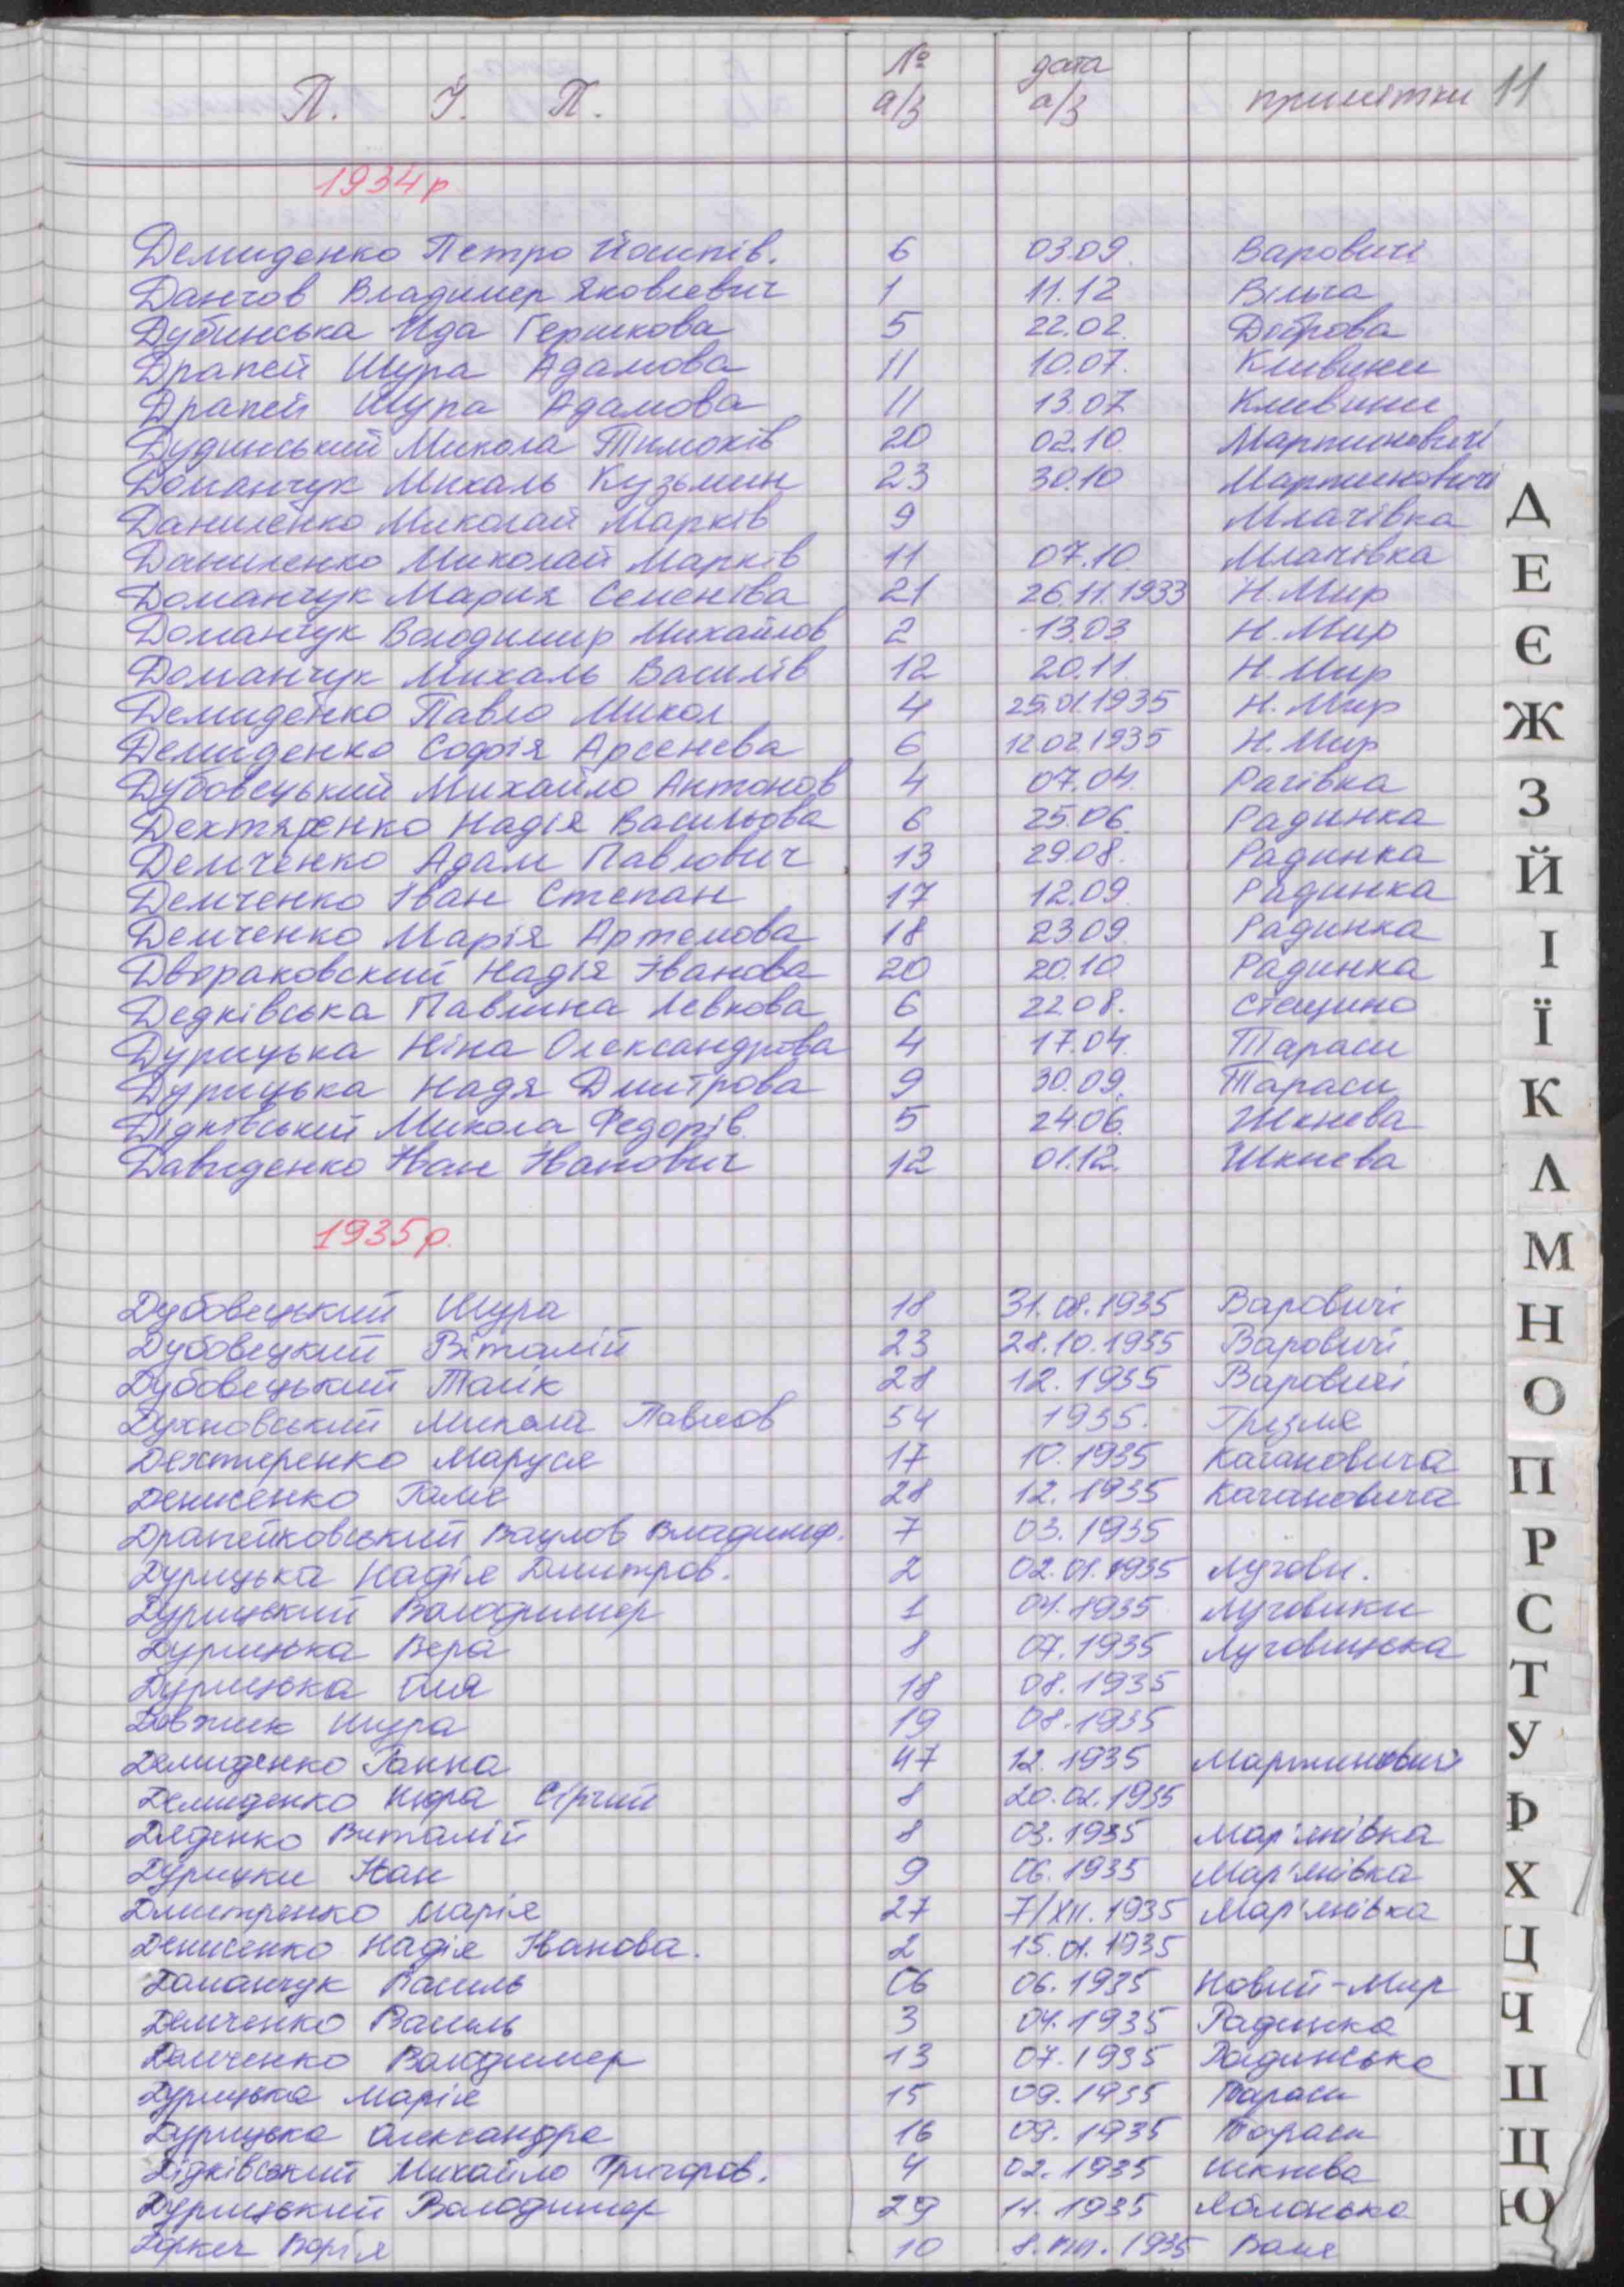 П. І. П. № а/з дата а/з примітки 11
1934р
Демиденко Петро Йосипів. 6 03.09. Варовичі
Данчов Владимер Яковлевич 1 11.12 Вільча
Дубинська Ида Гершкова 5 22.02. Діброва
Драпей Шура Адамова 11 10.07. Кливини
Драпей Шура Адамова 11 13.07 Кливини
Дудинський Микола Тимохів 20 02.10. Мартиновичі
Доманчук Михаль Кузьмин 23 30.10 Мартиновичі
Даниленко Миколай Марків 9 Млачівка
Даниленко Миколай Марків 11 07.10. Млачівка
Доманчук Мария Семенівa 21 26.11.1933 Н. Мир
Доманчук Володимир Михайлов 2 13.03 Н. Мир
Доманчук Михаль Василів 12 20.11. Н. Мир
Демиденко Павло Микол 4 25.01.1935 Н. Мир
Демиденко Софія Арсенєва 6 12.02.1935 Н. Мир
Дубовецький Михайло Антонов 4 07.04. Рагівка
Дехтяренко Надія Васильова 6 25.06. Радинка
Демченко Адам Павлович 13 29.08. Радинка
Демченко Іван Степан 17 12.09. Радинка
Демченко Марія Артемова 18 23.09. Радинка
Двораковский Надія Іванова 20 20.10 Радинка
Дедківська Павлина Левкова 6 22.08. Стещино
Дурицька Ніна Олександрова 4 17.04. Тараси
Дурицька Надя Дмитрова 9 30.09. Тараси
Дідківський Микола Федорів. 5 24.06. Шкнева
Давиденко Іван Іванович 12 01.12. Шкнева
1935р.
Дубовецький Шура 18 31.08.1935 Варовичі
Дубовецкий Віталій 23 28.10.1935 Варовичі
Дубовецький Толік 28 12.1935 Варовичі
Духновський Микола Павлов 54 1935. Грезля
Дехтяренко Маруся 17 10.1935 Кагановича
Денисенко Галя 28 12.1935 Кагановича
Драпейковський Владимир. 7 03.1935
Дурицька Надія Дмитров. 2 02.01.1935 Лугови.
Дурицький Володимер 1 04.1935 Луговики
Дурицька Вера 8 07.1935 Луговицька
Дурицька Оля 18 08.1935
Довжик Шура 19 08.1935
Демиденко Ганна 47 12.1935 Мартиновичі
Демиденко Юра Сіргий 8 20.02.1935
Дяденко Виталій 8 03.1935 Мар'янівка
Дурицки Іван 9 06.1935 Мар'янівка
Дмитренко Марія 27 7/XII.1935 Мар'янівка
Денисенко Надія Іванова. 2 15.01.1935
Доманчук Василь 06 06.1935 Новий-Мир
Демченко Василь 3 04.1935 Радинка
Демченко Володимер 13 07.1935 Радинська
Дурицька Марія 15 09.1935 Тараси
Дурицька Олександра 16 09.1935 Тараси
Дідківський Михайло Григоров. 4 02.1935 Шкнева
Дурицький Володимер 29 11.1935 Яблонька
10 8.VIII.1935
Д
Е
Є
Ж
З
Й
І
Ї
К
Л
М
Н
О
П
Р
С
Т
У
Ф
Х
Ц
Ч
Ш
Щ
Ю